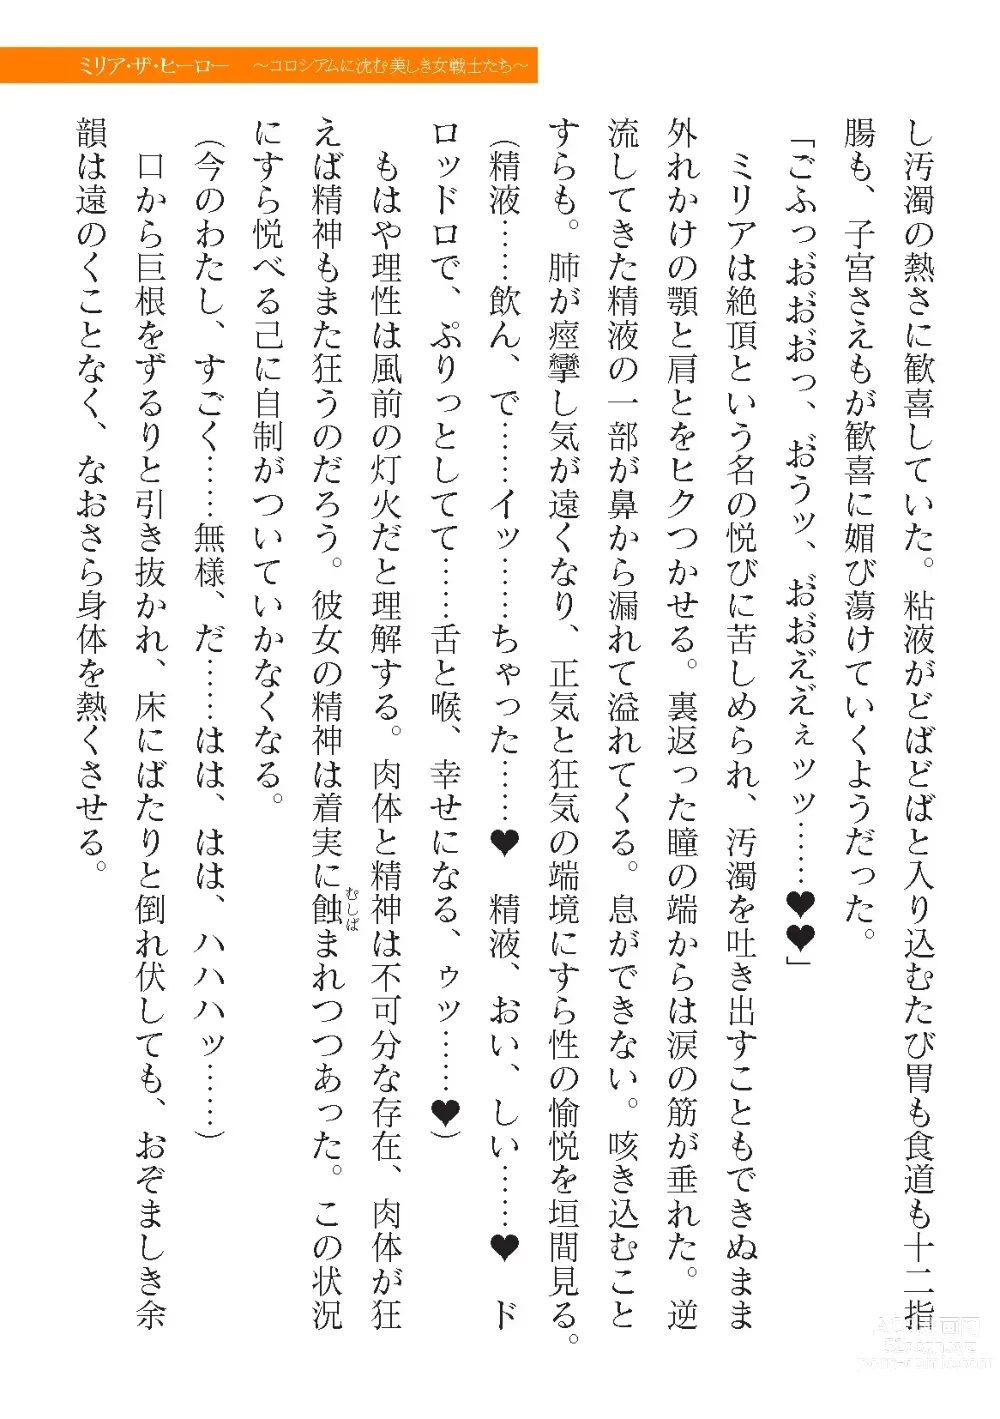 ミリア・ザ・ヒーロー　～コロシアムに沈む美しき女戦士たち～
し汚濁の熱さに歓喜していた。粘液がどばどばと入り込むたび胃も食道も十二指
腸も、子宮さえもが歓喜に媚び蕩けていくようだった。
「ごふっお゛お゛お゛っ、お゛うッ、お゛お゛え゛え゛ぇッッ……♥♥」
　ミリアは絶頂という名の悦びに苦しめられ、汚濁を吐き出すこともできぬまま
外れかけの顎と肩とをヒクつかせる。裏返った瞳の端からは涙の筋が垂れた。逆
流してきた精液の一部が鼻から漏れて溢れてくる。息ができない。咳き込むこと
すらも。肺が痙攣し気が遠くなり、正気と狂気の端境にすら性の愉悦を垣間見る。
（精液……飲ん、で……イッ……ちゃった……♥　精液、おい、しい……♥　ド
ロッドロで、ぷりっとしてて……舌と喉、幸せになる、ゥッ……♥）
　もはや理性は風前の灯火だと理解する。肉体と精神は不可分な存在、肉体が狂
えば精神もまた狂うのだろう。彼女の精神は着実に蝕まれつつあった。この状況
むしば
にすら悦べる己に自制がついていかなくなる。
（今のわたし、すごく……無様、だ……はは、はは、ハハハッ……）
　口から巨根をずるりと引き抜かれ、床にばたりと倒れ伏しても、おぞましき余
韻は遠のくことなく、なおさら身体を熱くさせる。